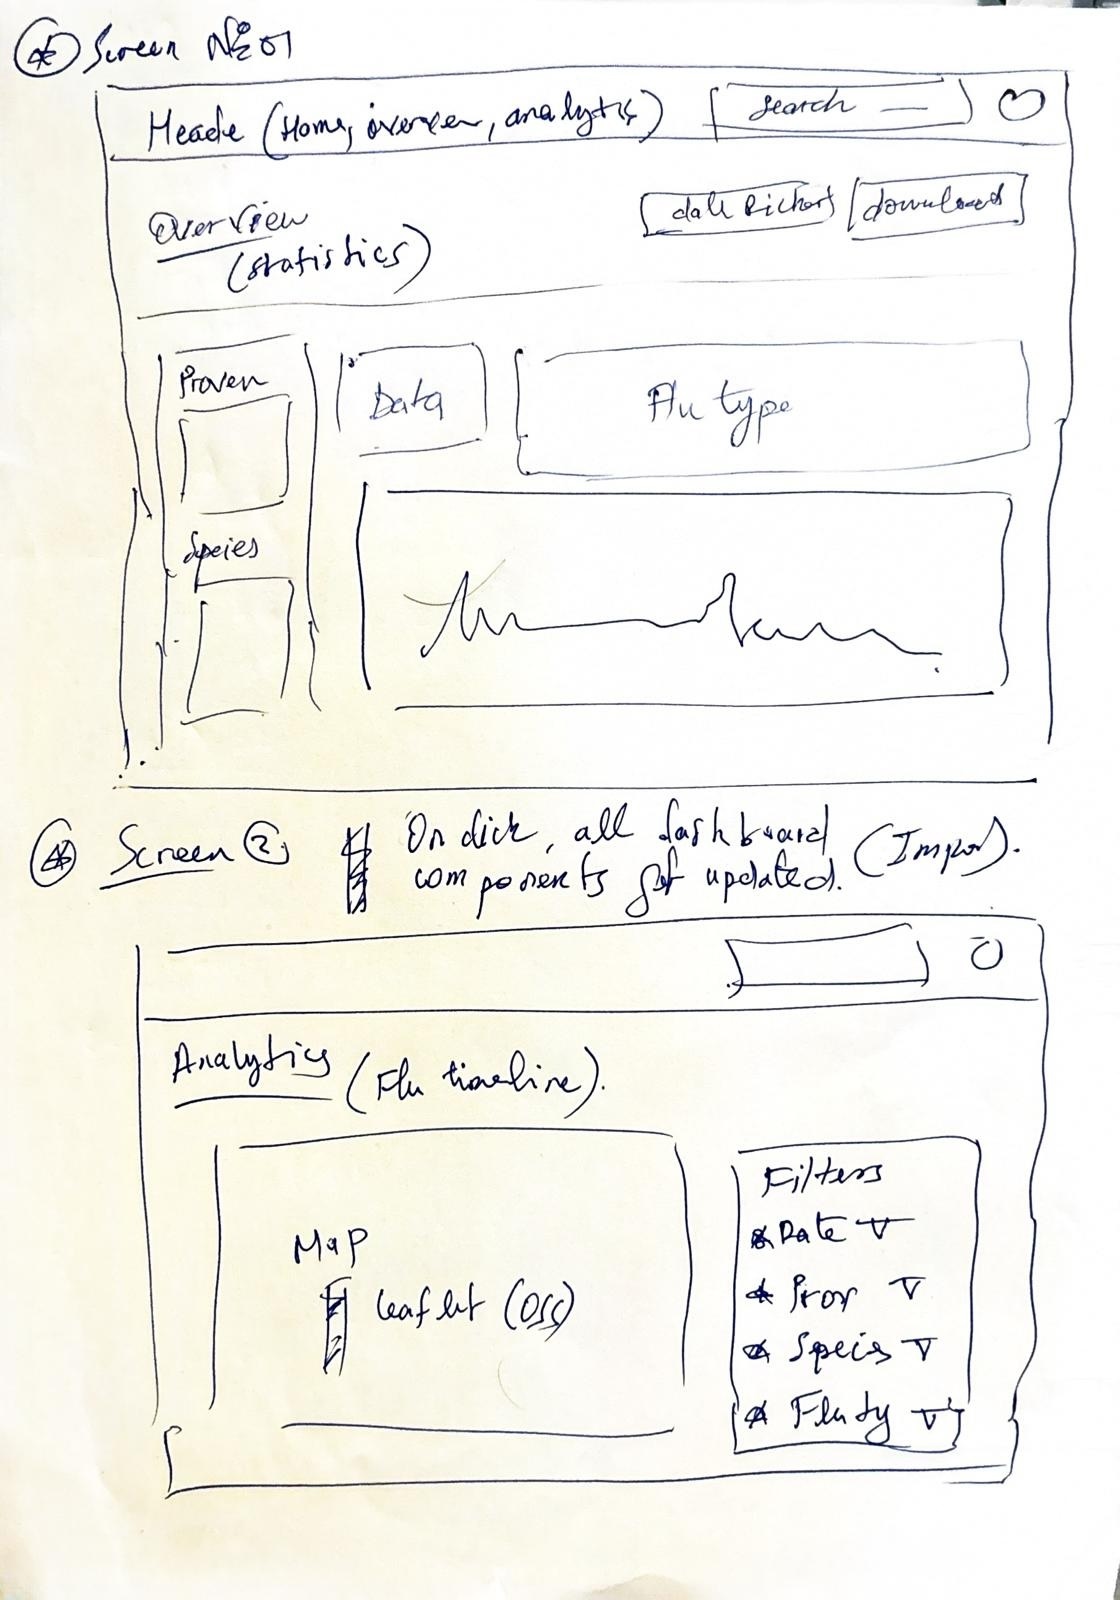 Screen No 01
Heade (Home, overview, analytics) search
Overview date Picker download
(statistics)
Proven Data Flu type
Speies
Screen 2 On click, all dashboard (Impor).
components get updated.
Analytics (Flu timeline).
Map
leaflet (OSS)
Filters
Date
Prov
Specis
Fluty